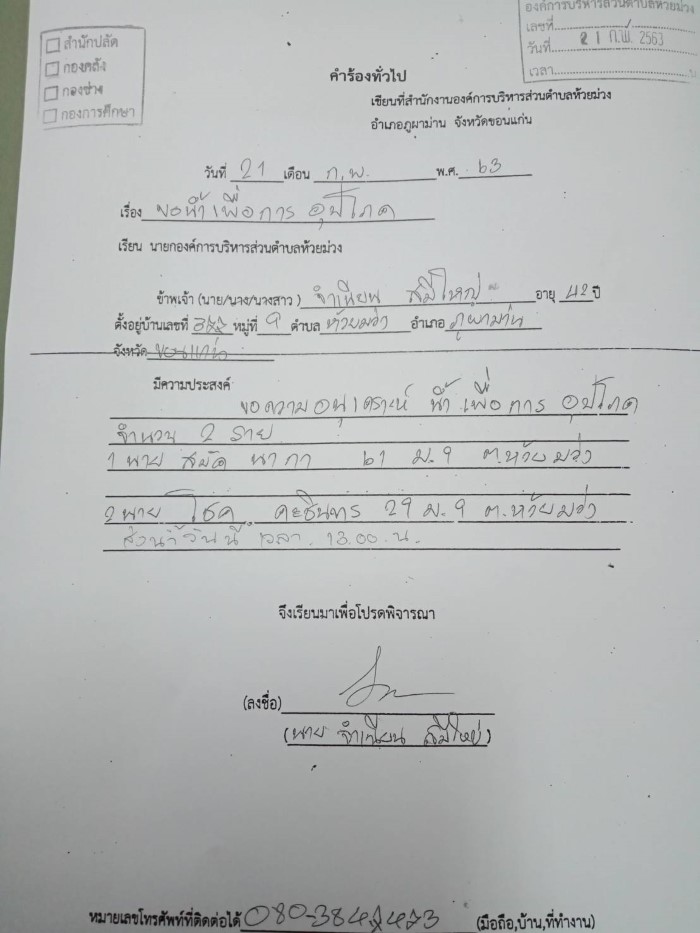 องค์การบริหารส่วนตำบลห้วยม่วง
เลขที่
วันที่ 21 ก.พ. 2563
เวลา น.
สำนักปลัด
กองคลัง
กองช่าง
กองการศึกษา
คำร้องทั่วไป
เขียนที่สำนักงานองค์การบริหารส่วนตำบลห้วยม่วง
อำเภอภูผาม่าน จังหวัดขอนแก่น
วันที่ 21 เดือน ก.พ. พ.ศ. 63
เรื่อง ขอน้ำเพื่อการ อุปโภค
เรียน นายกองค์การบริหารส่วนตำบลห้วยม่วง
ข้าพเจ้า (นาย/นาง/นางสาว) จำเนียน สีใหญ่ อายุ 42 ปี
ตั้งอยู่บ้านเลขที่ หมู่ที่ 9 ตำบล ห้วยม่วง อำเภอ ภูผาม่าน
จังหวัด ขอนแก่น
มีความประสงค์
ขอความอนุเคราะห์ น้ำ เพื่อการ อุปโภค
จำนวน 2 ราย
1 นาย สมัค นากา 61 ม.9 ต.ห้วยม่วง
2 นาย โชค คะชินทร 29 ม.9 ต.ห้วยม่วง
ส่งน้ำวันนี้ เวลา 13.00 น.
จึงเรียนมาเพื่อโปรดพิจารณา
(ลงชื่อ)
(นาย จำเนียน สีใหญ่)
หมายเลขโทรศัพท์ที่ติดต่อได้ (มือถือ,บ้าน,ที่ทำงาน)